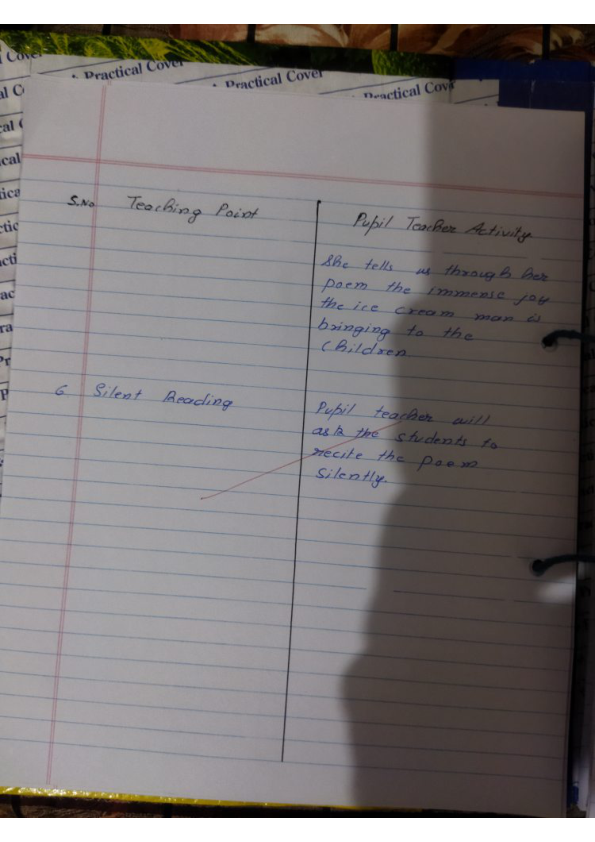 Practical Cover
Practical Cover
Practical Cov
S.No Teaching Point
Pupil Teacher Activity
She tells us through her
poem the immense joy
the ice cream man is
bringing to the
children
6 Silent Reading
Pupil teacher will
ask the students to
recite the poem
silently.